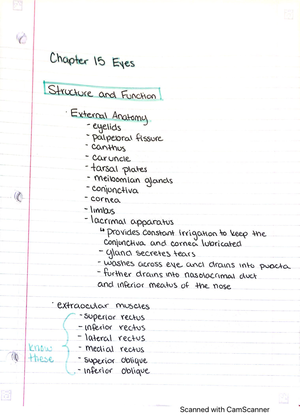 Chapter 15 Eyes
Structure and Function
· External Anatomy
- eyelids
- palpebral fissure
- canthus
- caruncle
- tarsal plates
- meibomian glands
- conjunctiva
- cornea
- limbus
- lacrimal apparatus
↳ provides constant irrigation to keep the
conjunctiva and cornea lubricated
- gland secretes tears
- washes across eye and drains into puncta
- further drains into nasolacrimal duct
and inferior meatus of the nose
· extraocular muscles
- superior rectus
- inferior rectus
- lateral rectus
know - medial rectus
these - superior oblique
- inferior oblique
Scanned with CamScanner